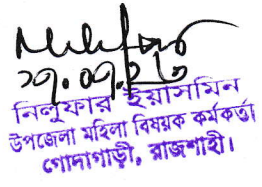 ২৭.০৭.২৩
নিলুফার ইয়াসমিন
উপজেলা মহিলা বিষয়ক কর্মকর্তা
গোদাগাড়ী, রাজশাহী।